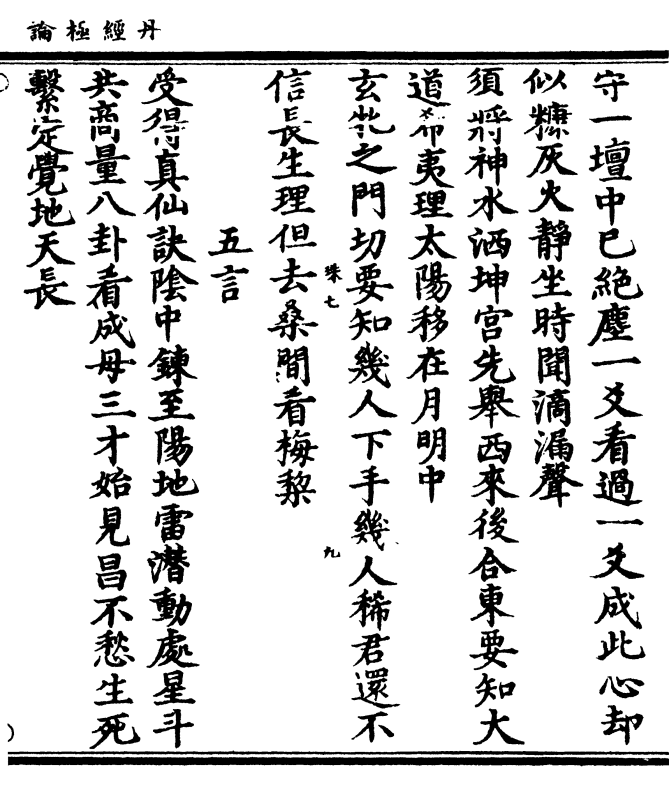 丹經極論
守一壇中已絕塵一爻看過一爻成此心却
似糠灰火靜坐時聞滴漏聲
須將神水洒坤宮先舉西來後合東要知大
道希夷理太陽移在月明中
玄牝之門切要知幾人下手幾人稀君還不
信長生理但去桑間看梅棃
珠七
九
五言
受得真仙訣陰中鍊至陽地雷潛動處星斗
共商量八卦看成母三才始見昌不愁生死
繫定覺地天長